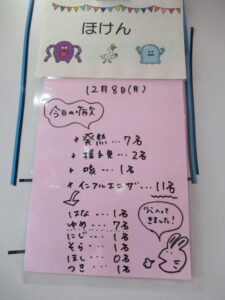 ほけん
12月8日(月)
今日の病欠
+ 発熱…7名
+ 様子見…2名
+ 咳…1名
+ インフルエンザ…11名
はな…1名
ゆめ…7名
にじ…1名
そら…1名
ほし…0名
つき…1名
ふえて
きました!